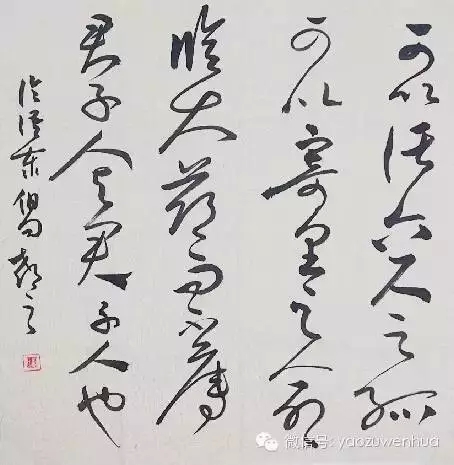 可以託六尺之孤
可以寄里之命
臨大節而不奪
君子人与君子人也
临泽东
微信号: yaozuwenhua